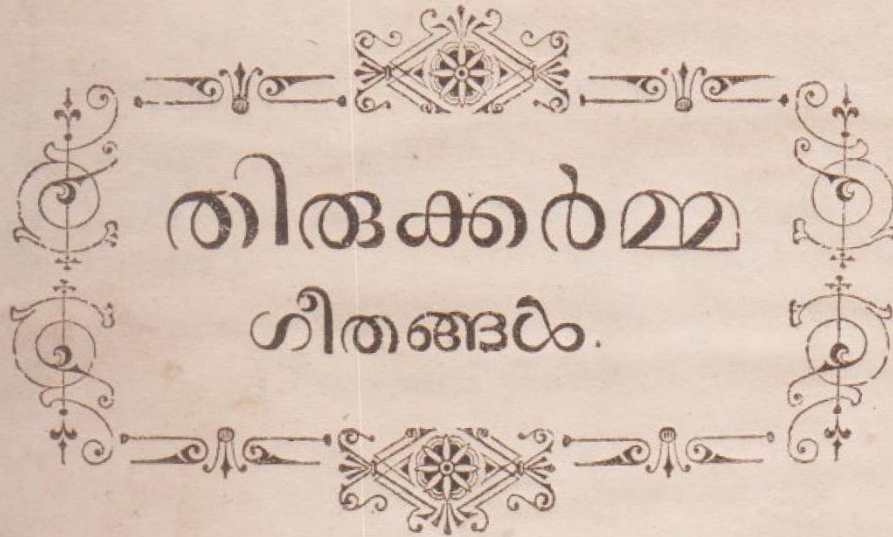 തിരുക്കർമ്മ
ഗീതങ്ങൾ.